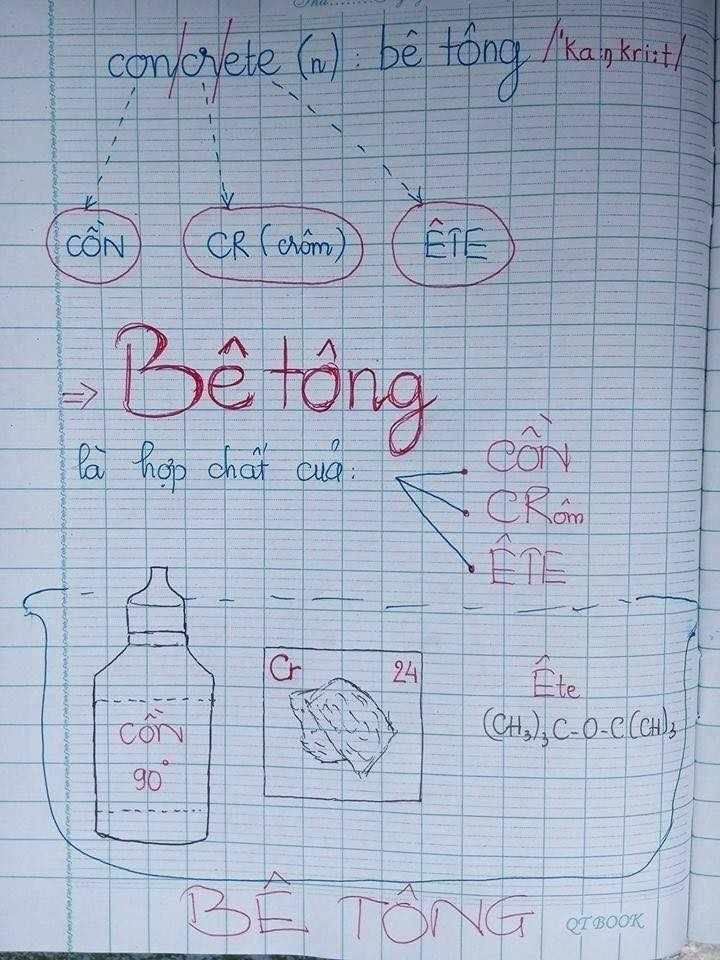 con/cr/ete (n) : bê tông /'kaŋkri:t/
CỒN CR (crôm) ÊTE
=> Bê tông
là hợp chất của:
CỒN
CRôm
ÊTE
CỒN
90°
Cr 24
Ête
(CH₃)₃C-O-C(CH)₃
BÊ TÔNG
QTBOOK